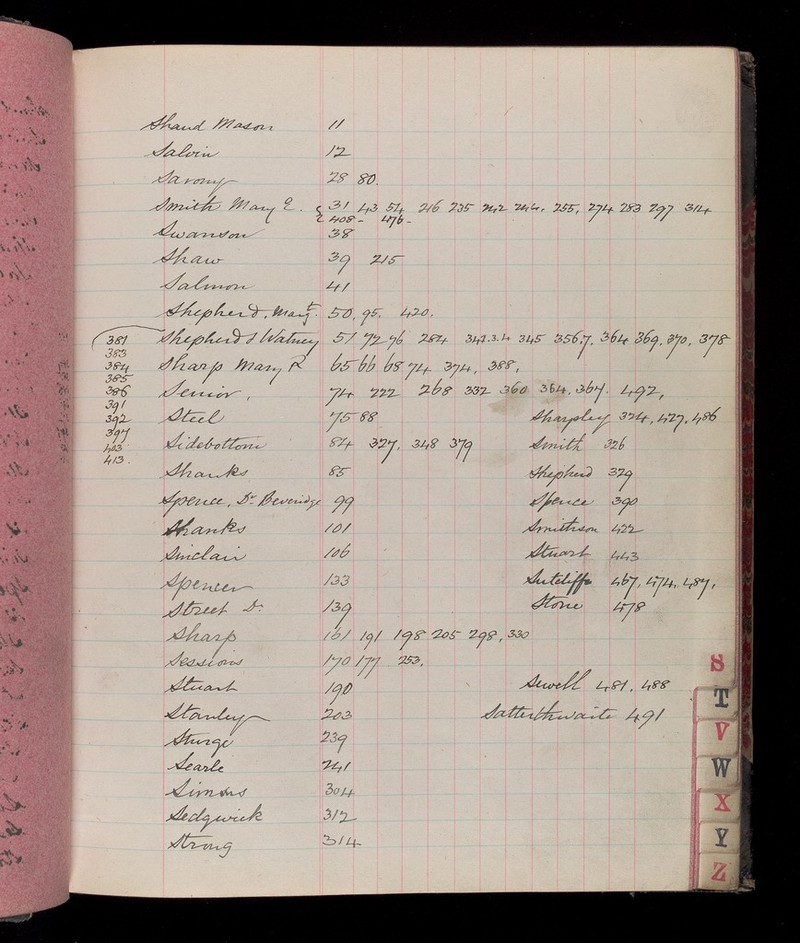 Shand Mason 11
Salvin 12
Savory 28 80.
Smith Mary E. 31 43 54 216 235 242 244. 255, 274 283 297 314
408- 476-
Swanson 38
Shaw 39 215
Salmon 41
Shepherd, Margt. 50. 95. 420.
381 Shepherd & Watney 51 72 76 284 342.3.4 345 356.7. 364 369. 370, 378
383
384 Sharp Mary R 65 66 68 74 374, 388,
385
386 Senior, 74 222 268 332 360 364. 367. 492,
391
392 Steel 75 88 Sharpley 324, 427, 486
397
403 Sidebottom 84 327. 348 379 Smith 326
413.
Shanks 85 Shepherd 329
Spence, Dr. Beveridge 99 Spence 390
Shanks 101 Smithson 422
Sinclair 106 Stuart 443
Spencer 133 Sutcliffe 467, 474, 487,
Street Dr. 139 Stone 478
Sharp 161 191 198 205 298, 330
Sessions 170 177 253.
Stuart 190 Sewell 481. 488
Stanley 203 Satterthwaite 491
Sturge 239
Searle 241
Simons 304
Sedgwick 312
Strong 314
S
T
V
W
X
Y
Z